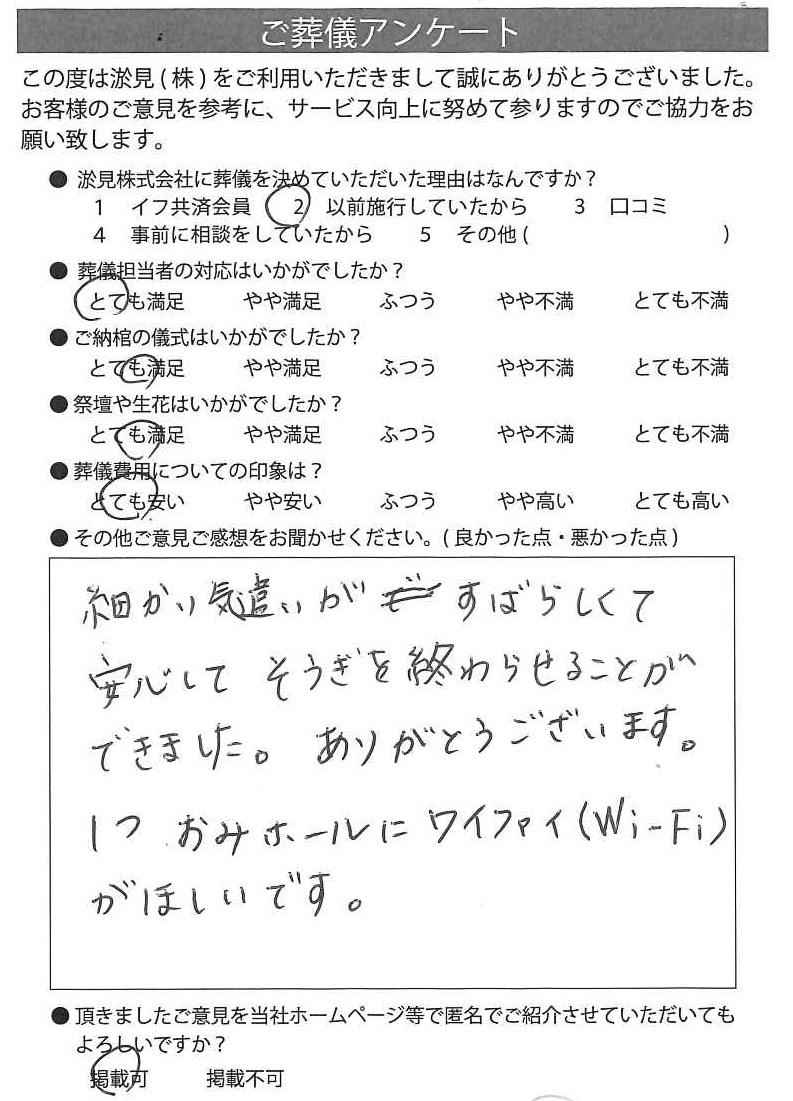 ご葬儀アンケート
この度は淤見(株)をご利用いただきまして誠にありがとうございました。
お客様のご意見を参考に、サービス向上に努めて参りますのでご協力をお
願い致します。
● 淤見株式会社に葬儀を決めていただいた理由はなんですか?
1 イフ共済会員 2 以前施行していたから 3 口コミ
4 事前に相談をしていたから 5 その他( )
● 葬儀担当者の対応はいかがでしたか?
とても満足 やや満足 ふつう やや不満 とても不満
● ご納棺の儀式はいかがでしたか?
とても満足 やや満足 ふつう やや不満 とても不満
● 祭壇や生花はいかがでしたか?
とても満足 やや満足 ふつう やや不満 とても不満
● 葬儀費用についての印象は?
とても安い やや安い ふつう やや高い とても高い
● その他ご意見ご感想をお聞かせください。(良かった点・悪かった点)
細かい気遣いが すばらしくて
安心して そうぎを終わらせることが
できました。ありがとうございます。
1つ おみホールに ワイファイ(Wi-Fi)
がほしいです。
● 頂きましたご意見を当社ホームページ等で匿名でご紹介させていただいても
よろしいですか?
掲載可 掲載不可